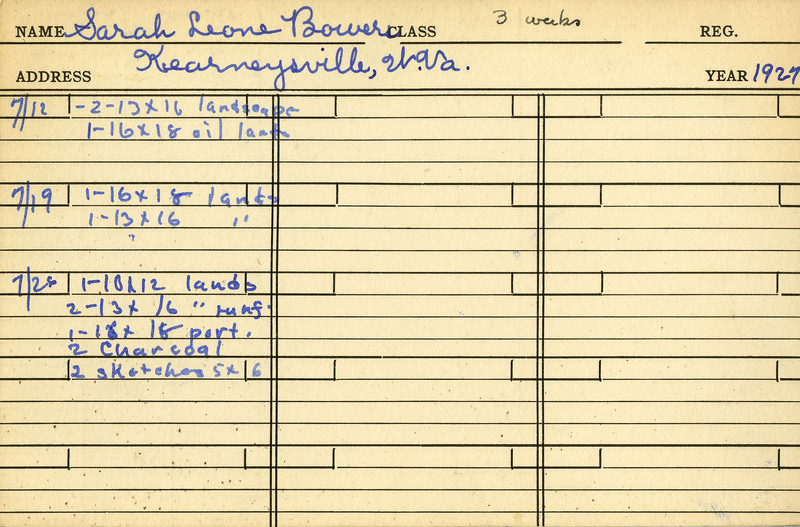 NAME Sarah Leone Bowers CLASS 3 weeks REG.
ADDRESS Kearneysville, W.Va. YEAR 1927
7/12 -2-13x16 landscape
1-16x18 oil lands
7/19 1-16x18 lands
1-13x16 "
"
7/26 1-10x12 lands
2-13x16 "
1-18x18 port.
2 Charcoal
2 sketches 5x6